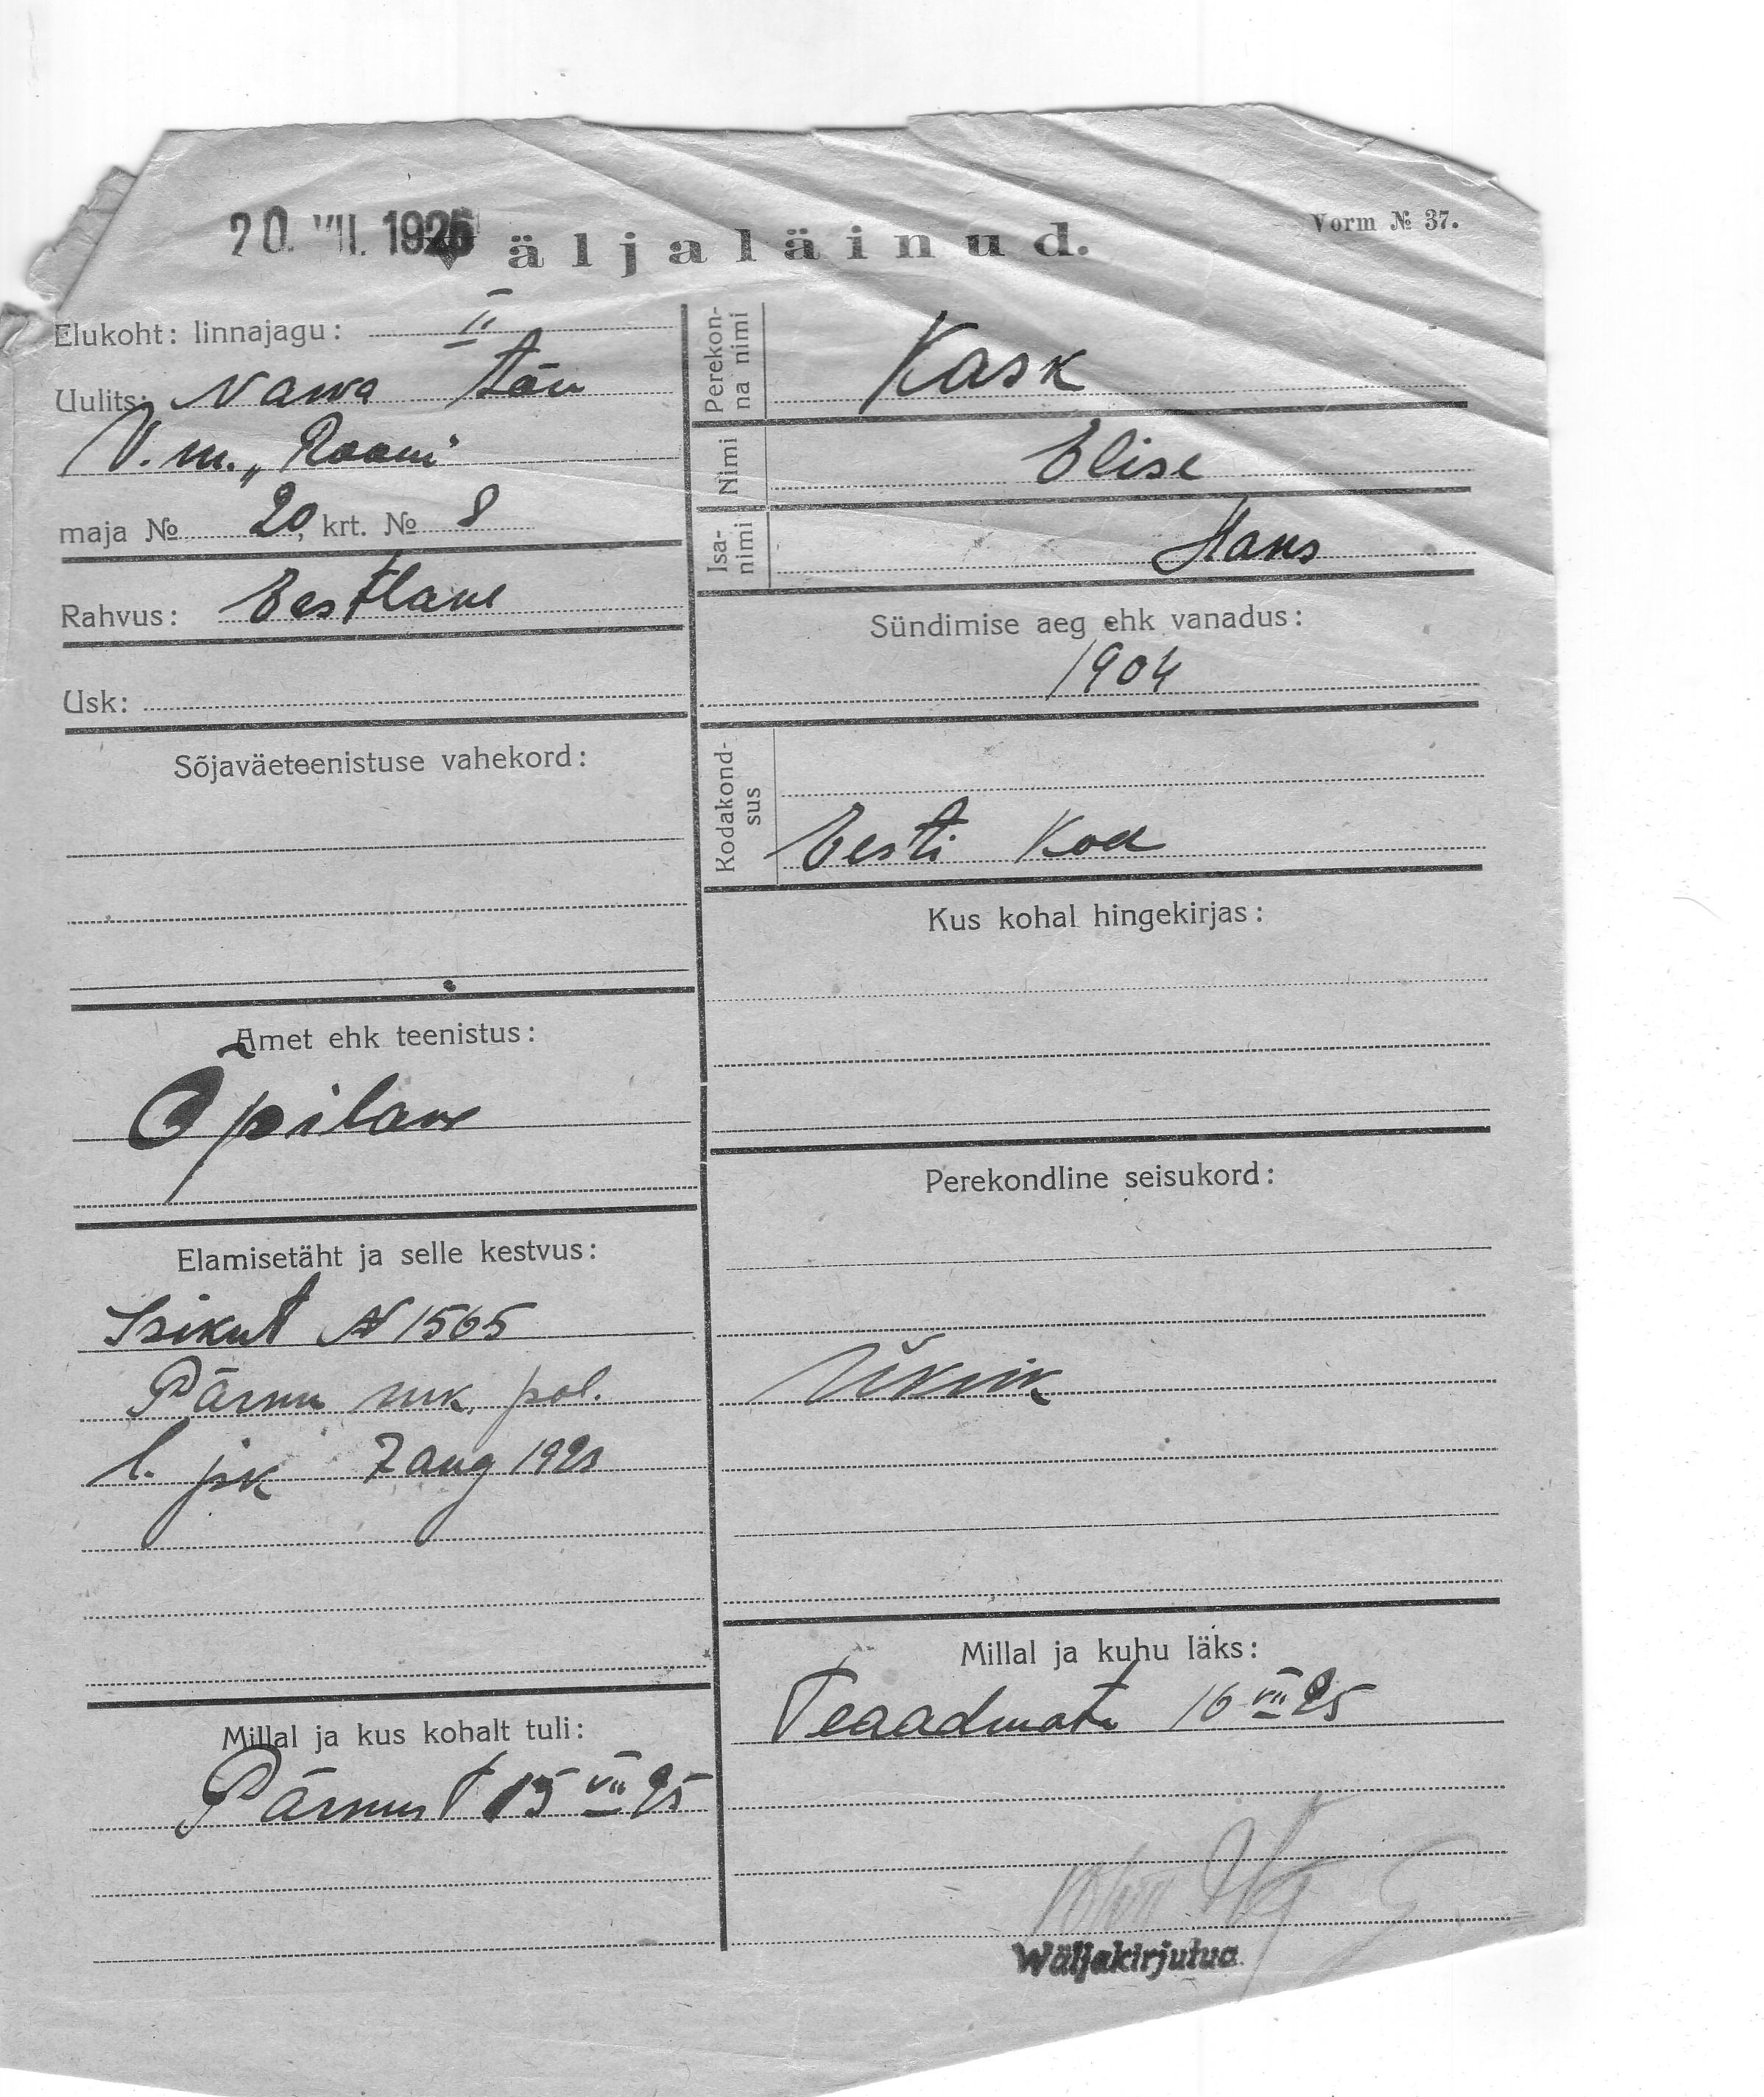 20. VII. 1925
Väljaläinud.
Vorm № 37.
Elukoht: linnajagu: II
Uulits: Narva tän
V. m. „Rooni"
maja № 20, krt. № 8
Rahvus: Eestlane
Usk:
Sõjaväeteenistuse vahekord:
Amet ehk teenistus:
Õpilane
Elamisetäht ja selle kestvus:
Isikut N 1565
Pärnu mk. pol.
l. jsk 7 aug 1921
Millal ja kus kohalt tuli:
Pärnust 15 VII 25
Perekonna nimi
Kask
Nimi
Elise
Isanimi
Hans
Sündimise aeg ehk vanadus:
1904
Kodakondsus
Eesti Kod
Kus kohal hingekirjas:
Perekondline seisukord:
Üksik
Millal ja kuhu läks:
Teaadmata 16 VII 25
Wäljakirjutud.